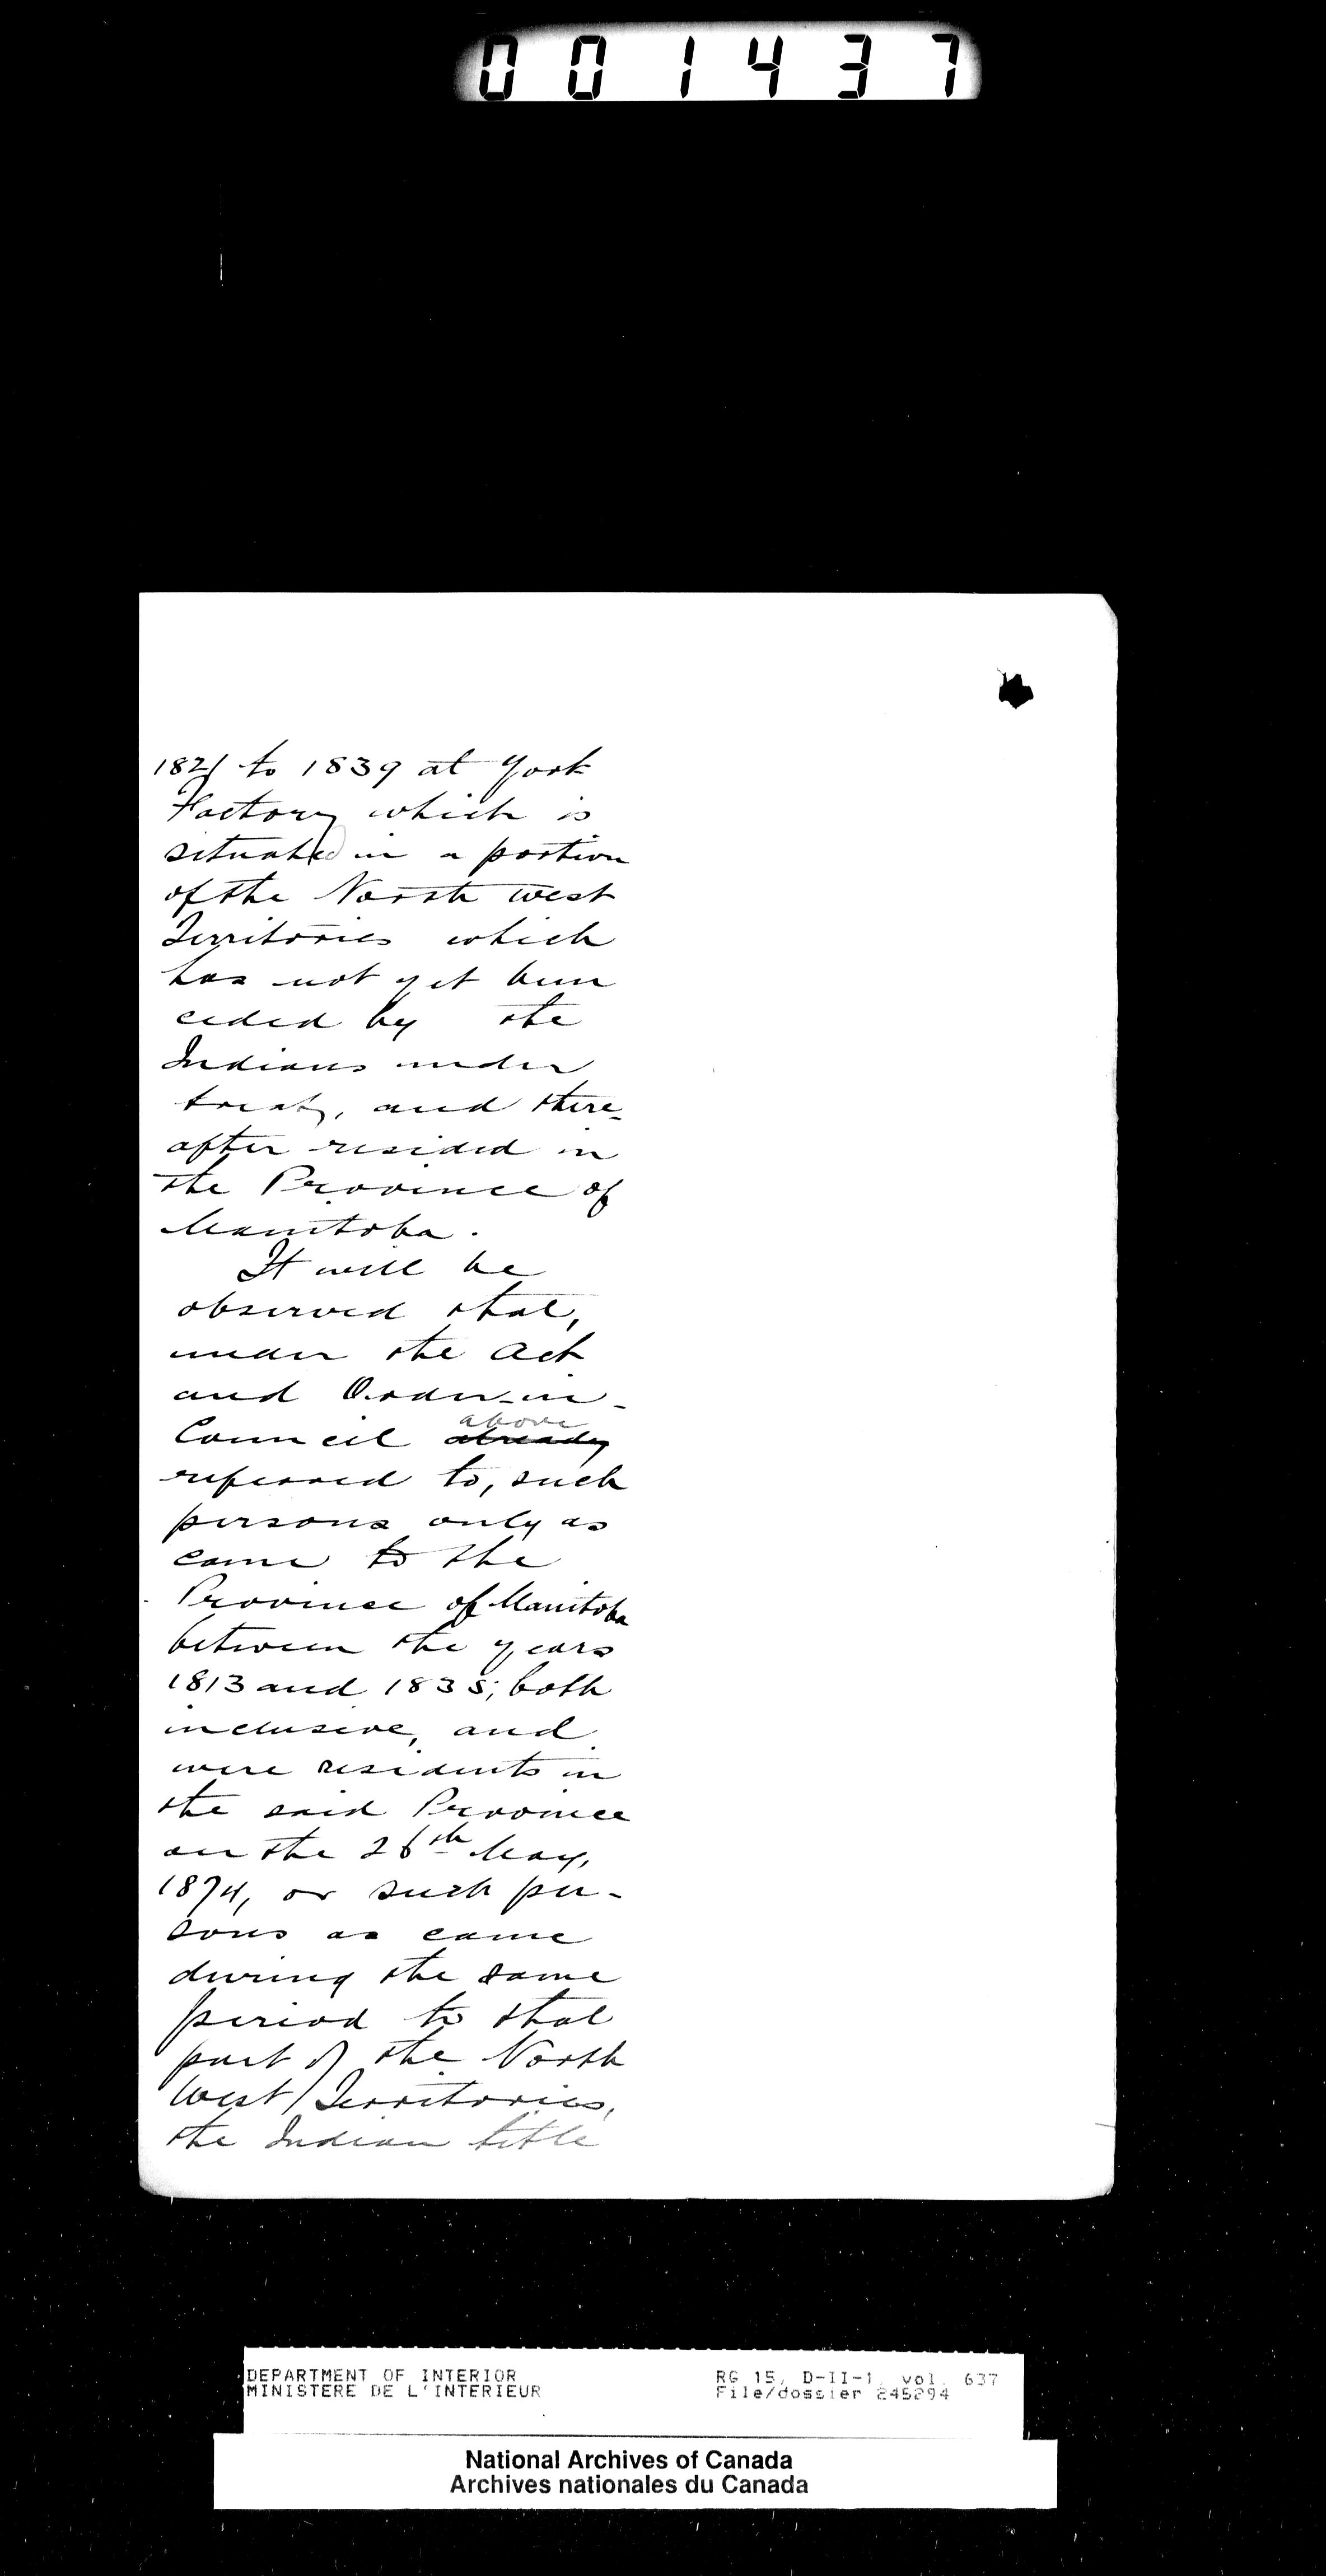 001437
1821 to 1839 at York
Factory which is
situated in a portion
of the North West
Territories which
has not yet been
ceded by the
Indians under
treaty, and there-
after resided in
the Province of
Manitoba.
It will be
observed that,
under the Act
and Order-in-
above
Council already
referred to, such
persons only as
came to the
Province of Manitoba
between the years
1813 and 1835, both
inclusive, and
were residents in
the said Province
on the 26th May,
1874, or such per-
sons as came
during the same
period to that
part of the North
West Territories,
the Indian title
DEPARTMENT OF INTERIOR RG 15, D-II-1, vol. 637
MINISTERE DE L'INTERIEUR File/dossier 245294
National Archives of Canada
Archives nationales du Canada